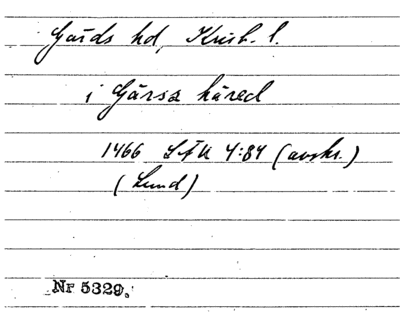 Gärds hd, Krist. l.
i Gärsa häred
1466 LÄU 4:84 (avskr.)
(Lund)
Nr 5329.